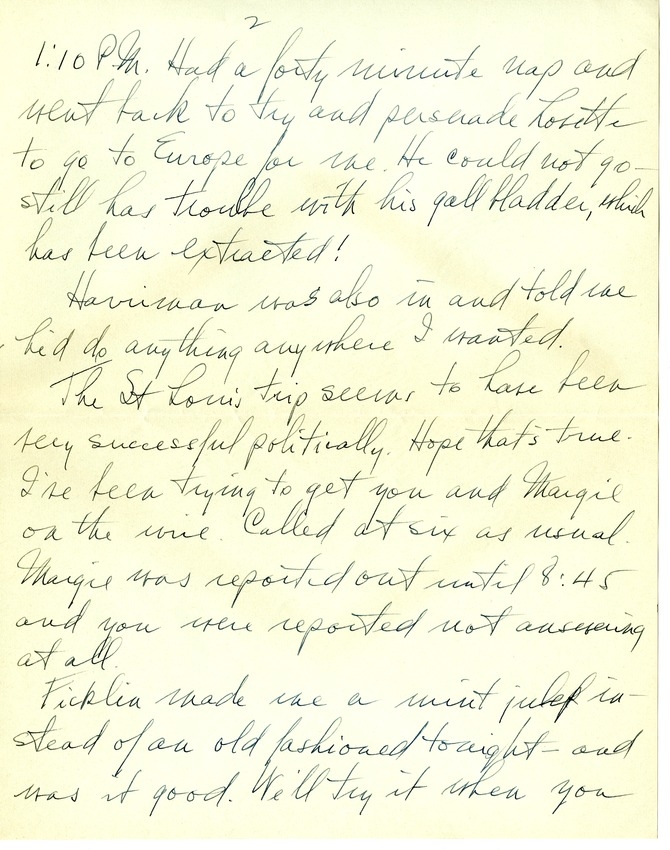 2
1:10 P.M. Had a forty minute nap and
went back to try and persuade Lovette
to go to Europe for me. He could not go—
still has trouble with his gall bladder, which
has been extracted!
Harriman was also in and told me
he'd do anything anywhere I wanted.
The St Louis trip seems to have been
very successful politically. Hope that's true.
I've been trying to get you and Margie
on the wire. Called at six as usual.
Margie was reported out until 8:45
and you were reported not answering
at all.
Ficklin made me a mint julep in-
stead of an old fashioned tonight— and
was it good. We'll try it when you